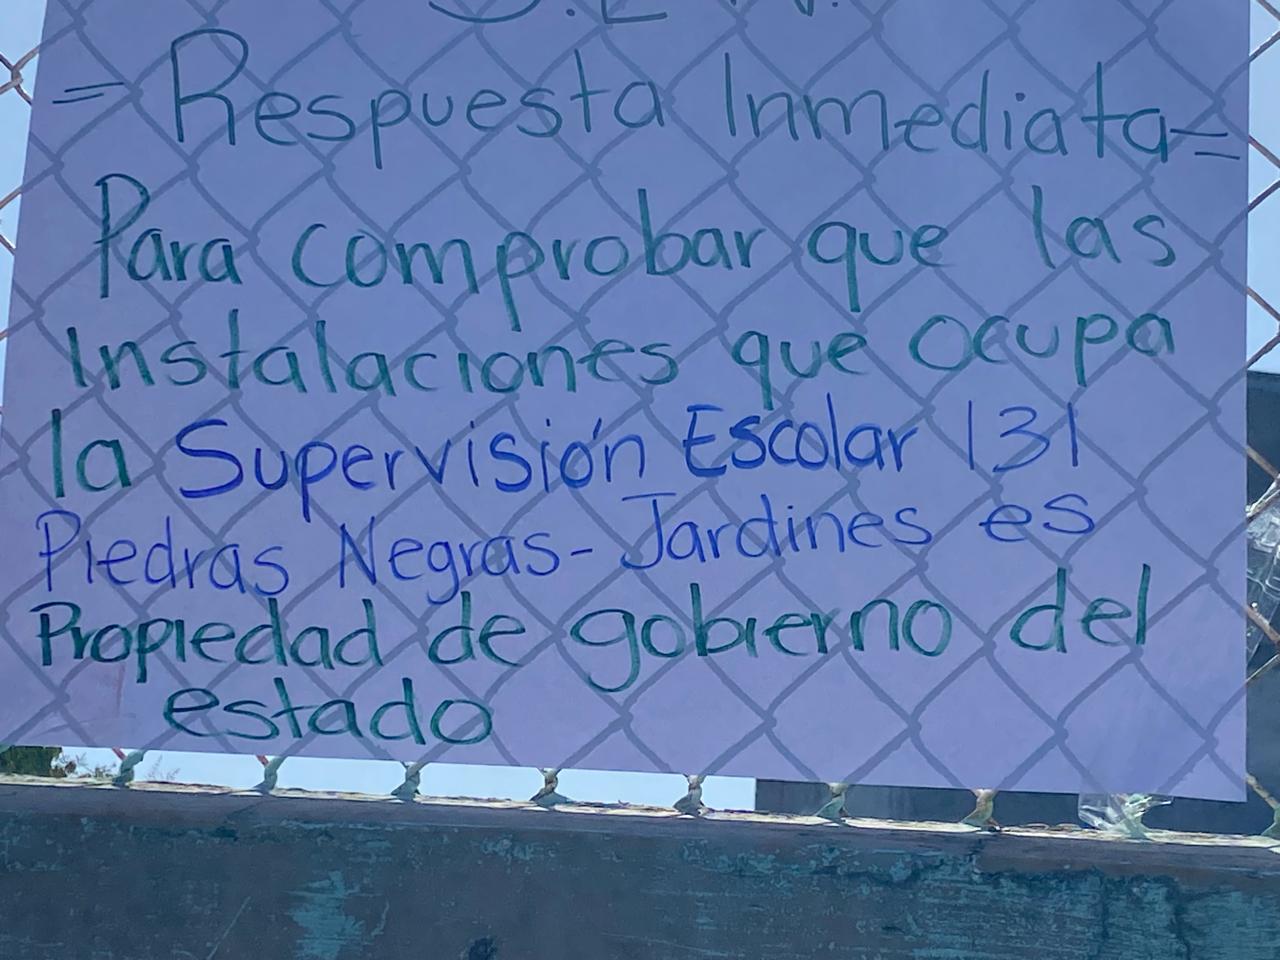 = Respuesta Inmediata =
Para comprobar que las
Instalaciones que ocupa
la Supervisión Escolar 131
Piedras Negras - Jardines es
Propiedad de gobierno del
estado